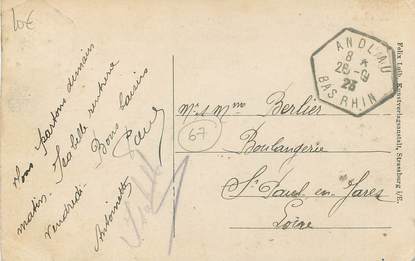 10€
Nous partons demain
matin. Isabelle rentrera
vendredi. Bons baisers
Antoinette Paul
ANDLAU
8 *
28-9
23
BAS RHIN
Mr & Mme Berlier
67
Boulangerie
St Paul en Jarez
Loire
Felix Luib, Kunstverlagsanstalt, Strassburg i/E.